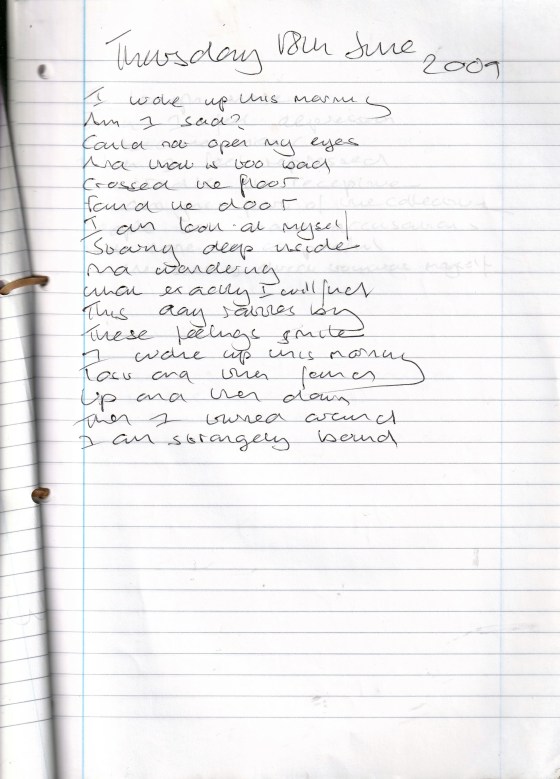 Thursday 18th June 2009
I woke up this morning
Am I sad?
Could not open my eyes
And that is too bad
Crossed the floor
Found the door
I am look at myself
Staring deep inside
And wondering
What exactly I will find
This day by
These feelings
I woke up this morning
Lost and then found
Up and then down
Then I turned around
I am strangely bound